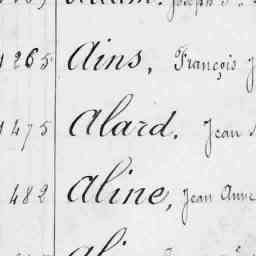 1265 Ains, François J
1475 Alard. Jean
482 Aline, Jean Anne